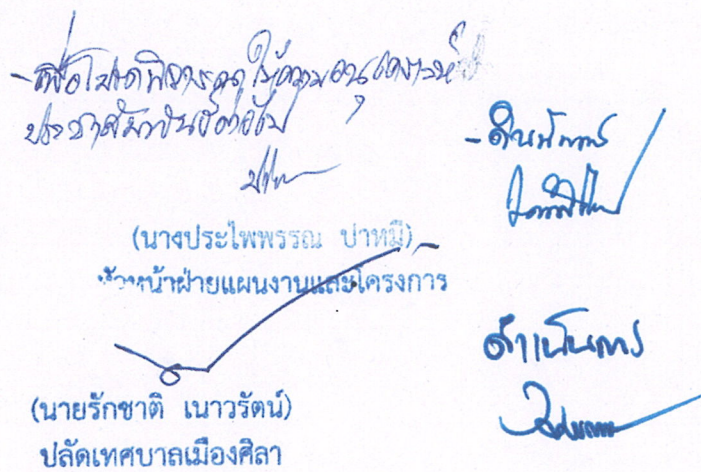 -เพื่อโปรดพิจารณาให้ความอนุเคราะห์
ประชาสัมพันธ์ต่อไป
(นางประไพพรรณ ปาหมี)
หัวหน้าฝ่ายแผนงานและโครงการ
(นายรักชาติ เนาวรัตน์)
ปลัดเทศบาลเมืองศิลา
ดำเนินการ